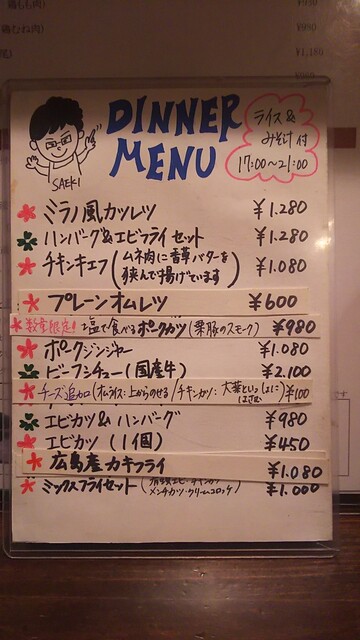 鶏もも肉)
¥930
鶏むね肉)
¥980
¥1,180
DINNER
MENU
SAEKI
ライス&
みそ汁付
17:00~21:00
ミラノ風カツレツ ¥1.280
ハンバーグ&エビフライセット ¥1.280
チキンキエフ(ムネ肉に香草バターを挟んで揚げています) ¥1.080
プレーンオムレツ ¥600
数量限定!! 塩で食べるポークカツ(栗豚のスモーク) ¥980
ポークジンジャー ¥1.080
ビーフシチュー(国産牛) ¥2.100
チーズ追加(オムライス:上からのせる/チキンカツ:大葉といっしょにはさむ) ¥100
エビカツ&ハンバーグ ¥980
エビカツ(1個) ¥450
広島産カキフライ ¥1.080
ミックスフライセット(メンチカツ・クリームコロッケ) ¥1.000